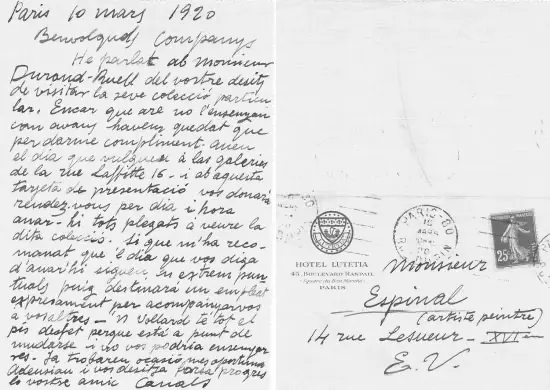 Paris 10 mars 1920
Benvolguts Companys
He parlat ab monsieur
Durand-Ruell del vostre desitj
de visitar la seve colecció particu
lar. Encar que are no l'ensenyan
com avans havem quedat que
per darme compliment. Aneu
el dia que vulgueu à las galeries
de la rue Laffitte 16 - i ab aquesta
tarjeta de presentació vos donará
rendez vous per dia i hora
anar-hi tots plegats à veure la
dita colecció. Lo que m'ha reco
manat que 'l dia que vos diga
d'anarhi sigueu, en extrem pun
tuals puig destinará un empleat
expresament per acompanyarvos
a vosaltres - 'n Vollard té tot el
pis desfet perque está a punt de
mudarse i no vos podria ensenyar
res - Ja trobarem ocasió mes oportuna
Adeusiau i vos desitja forsa progres
es vostre amic Canals
HOTEL LUTETIA
43, BOULEVARD RASPAIL
Square du Bon Marché
PARIS
PARIS-80
25
Monsieur
Espinal
(artiste peintre)
14 rue Lesueur - XVIem
E.V.